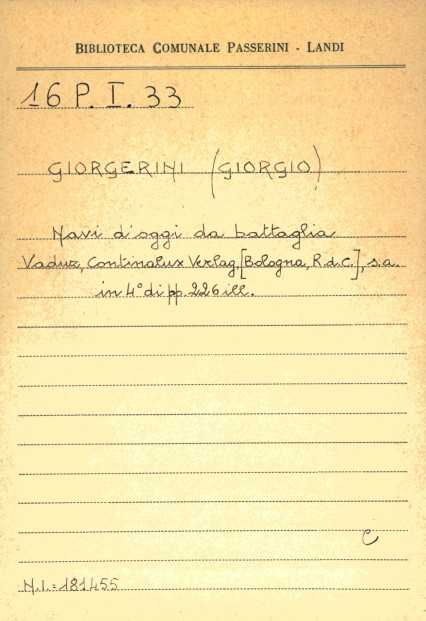 BIBLIOTECA COMUNALE PASSERINI - LANDI
16 P. I. 33
GIORGERINI (GIORGIO)
Navi d'oggi da battaglia
Vaduz, Continalux Verlag, [Bologna, R.d.C.], s.a.
in 4° di pp. 226 ill.
C
N.I.=181455